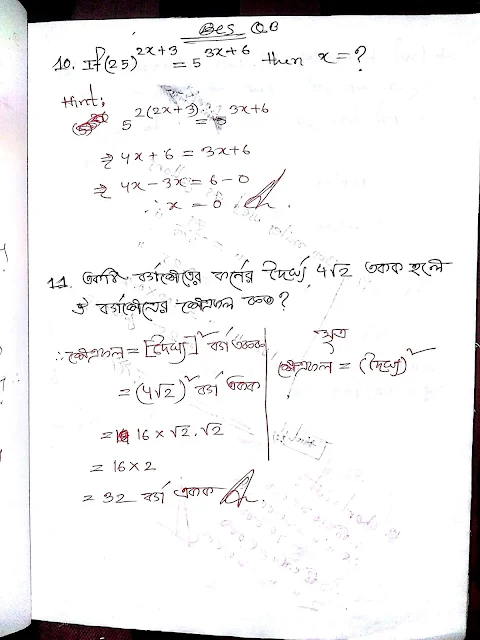 Bcs QB
10. If (25)^{2x+3} = 5^{3x+6} then x = ?
Hint;
5^{2(2x+3)} = 5^{3x+6}
⇒ 4x + 6 = 3x+6
⇒ 4x - 3x = 6 - 0
∴ x = 0
11. একটি বর্গক্ষেত্রের কর্ণের দৈর্ঘ্য 4√2 একক হলে
ঐ বর্গক্ষেত্রের ক্ষেত্রফল কত?
∴ ক্ষেত্রফল = [দৈর্ঘ্য]² বর্গ একক
= (4√2)² বর্গ একক
= 16 × √2 . √2
= 16 × 2
= 32 বর্গ একক
সূত্র
ক্ষেত্রফল = (দৈর্ঘ্য)²